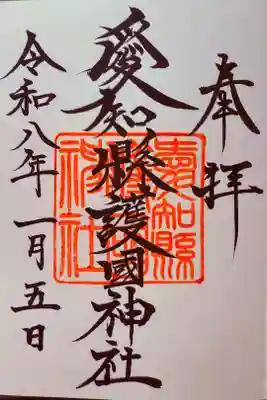 奉拝
愛知縣護國神社
愛知縣護國神社
令和八年一月五日